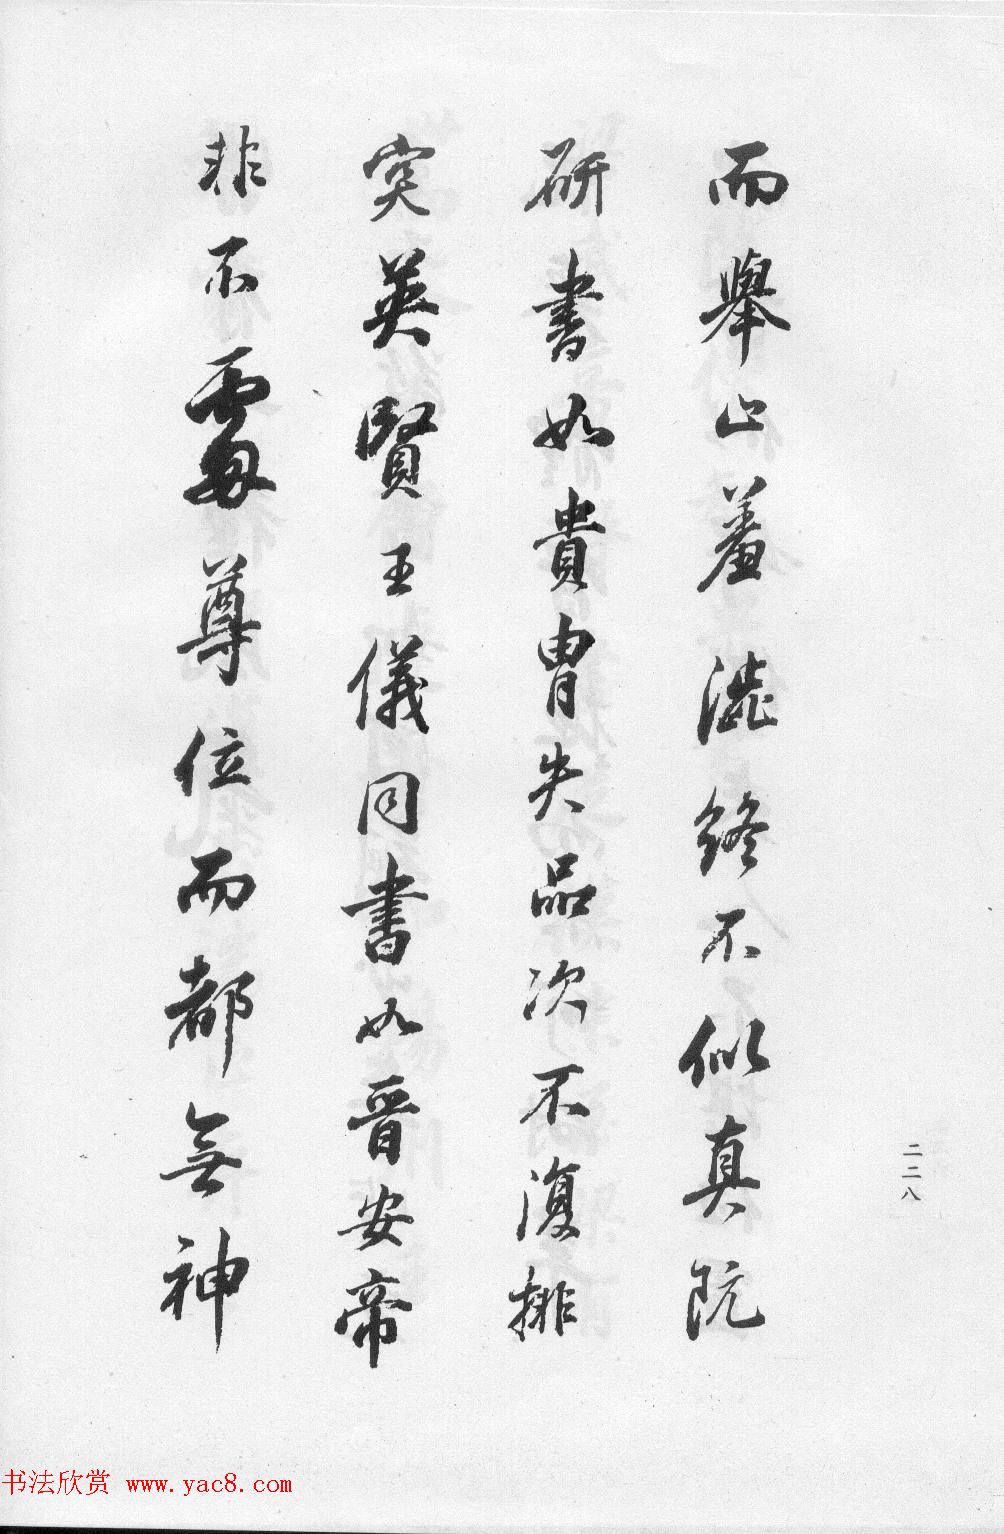 而舉止羞澁終不似真阮
研書如貴胄失品次不復排
突英賢王儀同書如晉安帝
非不處尊位而都無神
二二八
书法欣赏 www.yac8.com